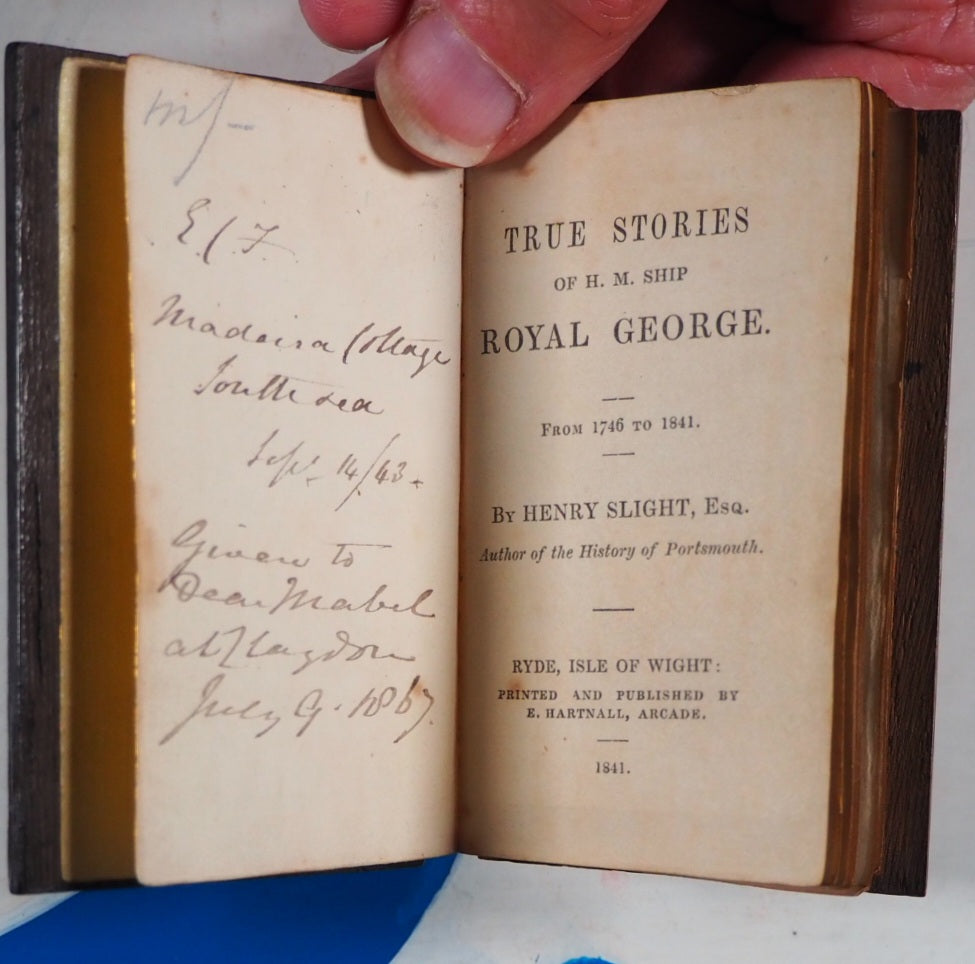 Madeira Cottage
Southsea
Sept. 14/43.
Given to
Dear Mabel
at
July 9. 1867.
TRUE STORIES
OF H. M. SHIP
ROYAL GEORGE.
FROM 1746 TO 1841.
BY HENRY SLIGHT, ESQ.
Author of the History of Portsmouth.
RYDE, ISLE OF WIGHT:
PRINTED AND PUBLISHED BY
E. HARTNALL, ARCADE.
1841.